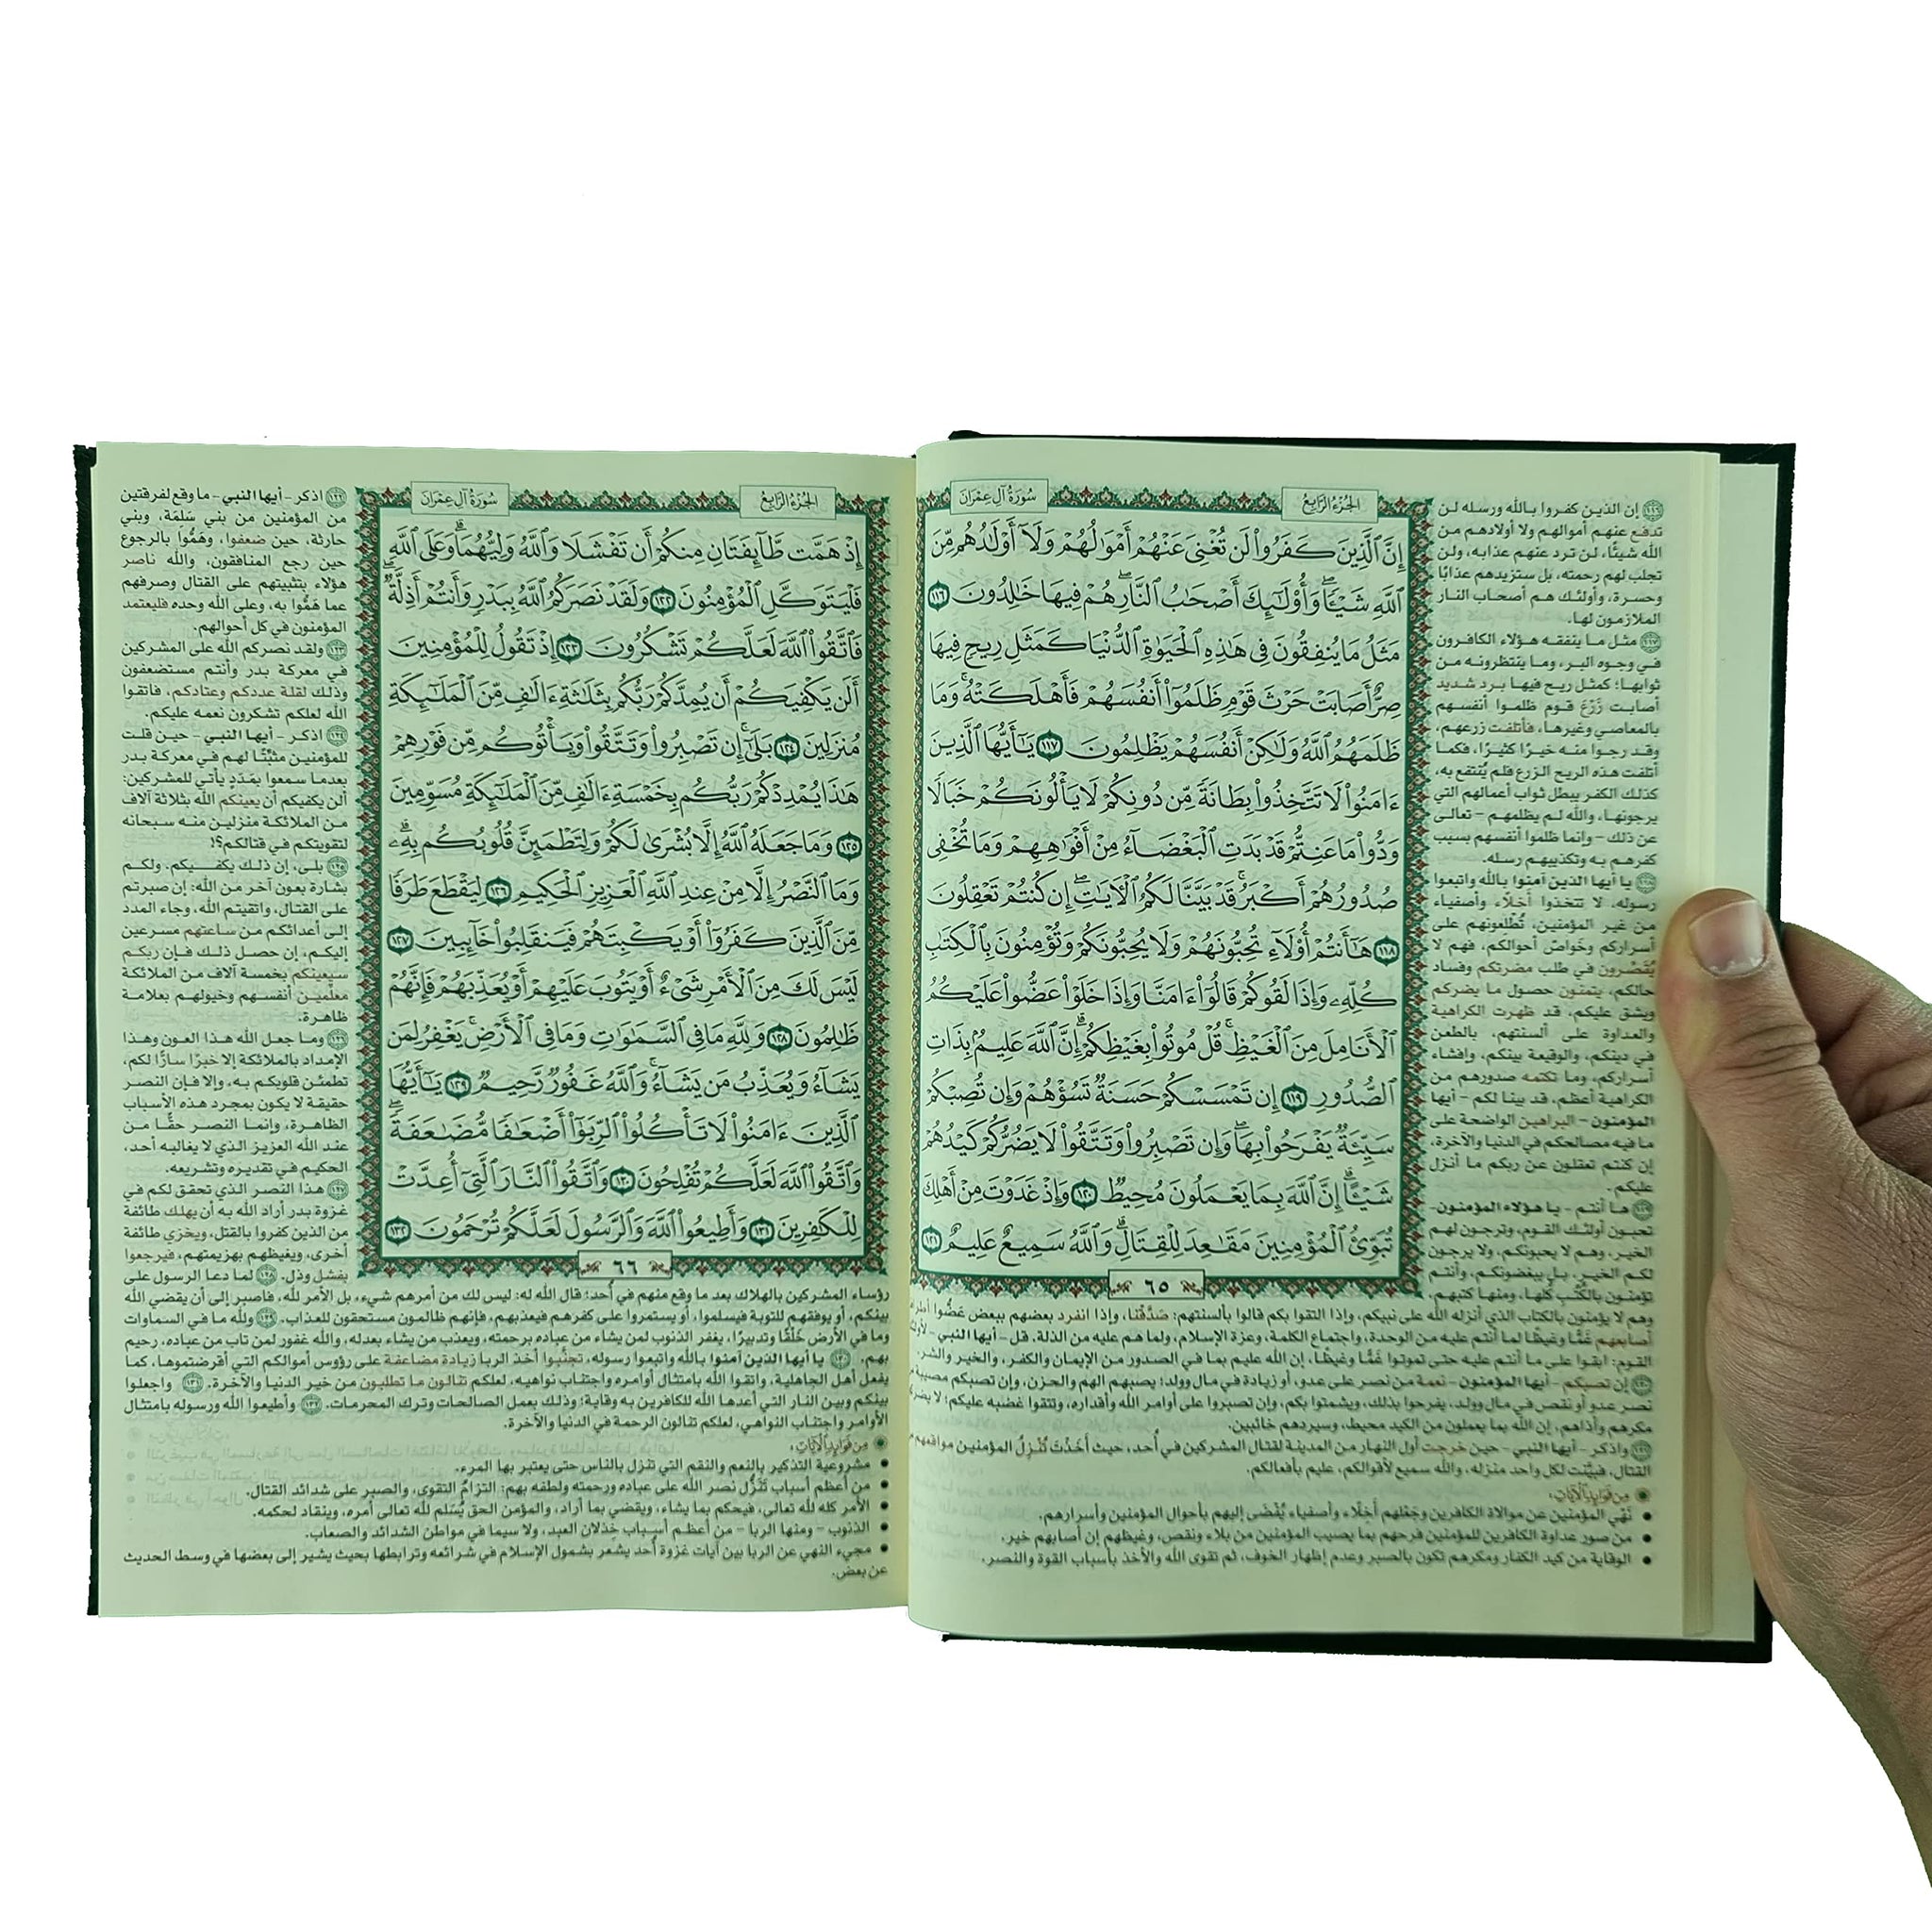 الجُزْءُ الرَّابِعُ
سُورَةُ آلِ عِمْرَانَ
إِنَّ ٱلَّذِينَ كَفَرُواْ لَن تُغْنِيَ عَنْهُمْ أَمْوَٰلُهُمْ وَلَآ أَوْلَٰدُهُم مِّنَ
ٱللَّهِ شَيْـًٔا ۖ وَأُوْلَٰٓئِكَ أَصْحَٰبُ ٱلنَّارِ ۖ هُمْ فِيهَا خَٰلِدُونَ ١١٦
مَثَلُ مَا يُنفِقُونَ فِى هَٰذِهِ ٱلْحَيَوٰةِ ٱلدُّنْيَا كَمَثَلِ رِيحٍ فِيهَا
صِرٌّ أَصَابَتْ حَرْثَ قَوْمٍ ظَلَمُوٓاْ أَنفُسَهُمْ فَأَهْلَكَتْهُ ۚ وَمَا
ظَلَمَهُمُ ٱللَّهُ وَلَٰكِنْ أَنفُسَهُمْ يَظْلِمُونَ ١١٧ يَٰٓأَيُّهَا ٱلَّذِينَ
ءَامَنُواْ لَا تَتَّخِذُواْ بِطَانَةً مِّن دُونِكُمْ لَا يَأْلُونَكُمْ خَبَالًا
وَدُّواْ مَا عَنِتُّمْ قَدْ بَدَتِ ٱلْبَغْضَآءُ مِنْ أَفْوَٰهِهِمْ وَمَا تُخْفِى
صُدُورُهُمْ أَكْبَرُ ۚ قَدْ بَيَّنَّا لَكُمُ ٱلْءَايَٰتِ ۖ إِن كُنتُمْ تَعْقِلُونَ
١١٨ هَٰٓأَنتُمْ أُوْلَآءِ تُحِبُّونَهُمْ وَلَا يُحِبُّونَكُمْ وَتُؤْمِنُونَ بِٱلْكِتَٰبِ
كُلِّهِۦ وَإِذَا لَقُوكُمْ قَالُوٓاْ ءَامَنَّا وَإِذَا خَلَوْاْ عَضُّواْ عَلَيْكُمُ
ٱلْأَنَامِلَ مِنَ ٱلْغَيْظِ ۚ قُلْ مُوتُواْ بِغَيْظِكُمْ ۗ إِنَّ ٱللَّهَ عَلِيمٌۢ بِذَاتِ
ٱلصُّدُورِ ١١٩ إِن تَمْسَسْكُمْ حَسَنَةٌ تَسُؤْهُمْ وَإِن تُصِبْكُمْ
سَيِّئَةٌ يَفْرَحُواْ بِهَا ۖ وَإِن تَصْبِرُواْ وَتَتَّقُواْ لَا يَضُرُّكُمْ كَيْدُهُمْ
شَيْـًٔا ۗ إِنَّ ٱللَّهَ بِمَا يَعْمَلُونَ مُحِيطٌ ١٢٠ وَإِذْ غَدَوْتَ مِنْ أَهْلِكَ
تُبَوِّئُ ٱلْمُؤْمِنِينَ مَقَٰعِدَ لِلْقِتَالِ ۗ وَٱللَّهُ سَمِيعٌ عَلِيمٌ ١٢١
٦٥
١١٦ إن الذين كفروا بالله ورسله لن
تدفع عنهم أموالهم ولا أولادهم من
الله شيئًا، لن ترد عنهم عذابه، ولن
تجلب لهم رحمته، بل ستزيدهم عذابًا
وحسرة، وأولئك هم أصحاب النار
الملازمون لها.
١١٧ مثل ما ينفقه هؤلاء الكافرون
في وجوه البر، وما ينتظرونه من
ثوابها؛ كمثل ريح فيها برد شديد
أصابت زَرْعَ قوم ظلموا أنفسهم
بالمعاصي وغيرها، فأتلفت زرعهم،
وقد رجوا منه خيرًا كثيرًا، فكما
أتلفت هذه الريح الزرع فلم يُنتفع به،
كذلك الكفر يبطل ثواب أعمالهم التي
يرجونها، والله لم يظلمهم – تعالى
عن ذلك – وإنما ظلموا أنفسهم بسبب
كفرهم به وتكذيبهم رسله.
١١٨ يا أيها الذين آمنوا بالله واتبعوا
رسوله، لا تتخذوا أَخِلَّاء وأصفياء
من غير المؤمنين، تُطْلعونهم على
أسراركم وخواصّ أحوالكم، فهم لا
يُقَصِّرون في طلب مضرتكم وفساد
حالكم، يتمنون حصول ما يضركم
ويشق عليكم، قد ظهرت الكراهية
والعداوة على ألسنتهم، بالطعن
في دينكم، والوقيعة بينكم، وإفشاء
أسراركم، وما تكتمه صدورهم من
الكراهية أعظم، قد بينا لكم – أيها
المؤمنون – البراهين الواضحة على
ما فيه مصالحكم في الدنيا والآخرة،
إن كنتم تعقلون عن ربكم ما أنزل
عليكم.
١١٩ ها أنتم – يا هؤلاء المؤمنون–
تحبون أولئك القوم، وترجون لهم
الخير، وهم لا يحبونكم، ولا يرجون
لكم الخير، بل يبغضونكم، وأنتم
تؤمنون بالكُتُب كُلها، ومنها كتبهم،
وهم لا يؤمنون بالكتاب الذي أنزله الله على نبيكم، وإذا التقوا بكم قالوا بألسنتهم: صَدَّقْنا، وإذا انفرد بعضهم ببعض عَضُّوا
أصابعهم غَمًّا وغيظًا لما أنتم عليه من الوحدة، واجتماع الكلمة، وعزة الإسلام، ولما هم عليه من الذلة. قل – أيها النبي –
القوم: ابقوا على ما أنتم عليه حتى تموتوا غَمًّا وغيظًا، إن الله عليم بما في الصدور من الإيمان والكفر، والخير والشر.
١٢٠ إن تصبكم – أيها المؤمنون – نعمة من نصر على عدو، أو زيادة في مال وولد؛ يصبهم الهم والحزن، وإن تصبكم مصيبة
نصر عدو أو نقص في مال وولد، يفرحوا بذلك، ويشمتوا بكم، وإن تصبروا على أوامر الله وأقداره، وتتقوا غضبه عليكم؛ لا
مكرهم وأذاهم، إن الله بما يعملون من الكيد محيط، وسيردهم خائبين.
١٢١ واذكر – أيها النبي – حين خرجت أول النهار من المدينة لقتال المشركين في أُحد، حيث أَخَذْتَ تُنْزِلُ المؤمنين مواقعهم
القتال، فبيَّنت لكل واحد منزله، والله سميع لأقوالكم، عليم بأفعالكم.
مِن فَوَائِدِ الْآيَاتِ:
• نَهْي المؤمنين عن موالاة الكافرين وجَعْلهم أَخِلَّاء وأصفياء يُفْضَى إليهم بأحوال المؤمنين وأسرارهم.
• من صور عداوة الكافرين للمؤمنين فرحهم بما يصيب المؤمنين من بلاء ونقص، وغيظهم إن أصابهم خير.
• الوقاية من كيد الكفار ومكرهم تكون بالصبر وعدم إظهار الخوف، ثم تقوى الله والأخذ بأسباب القوة والنصر.
الجُزْءُ الرَّابِعُ
سُورَةُ آلِ عِمْرَانَ
إِذْ هَمَّت طَّآئِفَتَانِ مِنكُمْ أَن تَفْشَلَا وَٱللَّهُ وَلِيُّهُمَا ۗ وَعَلَى ٱللَّهِ
فَلْيَتَوَكَّلِ ٱلْمُؤْمِنُونَ ١٢٢ وَلَقَدْ نَصَرَكُمُ ٱللَّهُ بِبَدْرٍ وَأَنتُمْ أَذِلَّةٌ ۖ
فَٱتَّقُواْ ٱللَّهَ لَعَلَّكُمْ تَشْكُرُونَ ١٢٣ إِذْ تَقُولُ لِلْمُؤْمِنِينَ
أَلَن يَكْفِيَكُمْ أَن يُمِدَّكُمْ رَبُّكُم بِثَلَٰثَةِ ءَالَٰفٍ مِّنَ ٱلْمَلَٰٓئِكَةِ
مُنزَلِينَ ١٢٤ بَلَىٰٓ ۚ إِن تَصْبِرُواْ وَتَتَّقُواْ وَيَأْتُوكُم مِّن فَوْرِهِمْ
هَٰذَا يُمْدِدْكُمْ رَبُّكُم بِخَمْسَةِ ءَالَٰفٍ مِّنَ ٱلْمَلَٰٓئِكَةِ مُسَوِّمِينَ
١٢٥ وَمَا جَعَلَهُ ٱللَّهُ إِلَّا بُشْرَىٰ لَكُمْ وَلِتَطْمَئِنَّ قُلُوبُكُم بِهِۦ ۗ
وَمَا ٱلنَّصْرُ إِلَّا مِنْ عِندِ ٱللَّهِ ٱلْعَزِيزِ ٱلْحَكِيمِ ١٢٦ لِيَقْطَعَ طَرَفًا
مِّنَ ٱلَّذِينَ كَفَرُوٓاْ أَوْ يَكْبِتَهُمْ فَيَنقَلِبُواْ خَآئِبِينَ ١٢٧
لَيْسَ لَكَ مِنَ ٱلْأَمْرِ شَىْءٌ أَوْ يَتُوبَ عَلَيْهِمْ أَوْ يُعَذِّبَهُمْ فَإِنَّهُمْ
ظَٰلِمُونَ ١٢٨ وَلِلَّهِ مَا فِى ٱلسَّمَٰوَٰتِ وَمَا فِى ٱلْأَرْضِ ۚ يَغْفِرُ لِمَن
يَشَآءُ وَيُعَذِّبُ مَن يَشَآءُ ۚ وَٱللَّهُ غَفُورٌ رَّحِيمٌ ١٢٩ يَٰٓأَيُّهَا
ٱلَّذِينَ ءَامَنُواْ لَا تَأْكُلُواْ ٱلرِّبَوٰٓاْ أَضْعَٰفًا مُّضَٰعَفَةً ۖ
وَٱتَّقُواْ ٱللَّهَ لَعَلَّكُمْ تُفْلِحُونَ ١٣٠ وَٱتَّقُواْ ٱلنَّارَ ٱلَّتِىٓ أُعِدَّتْ
لِلْكَٰفِرِينَ ١٣١ وَأَطِيعُواْ ٱللَّهَ وَٱلرَّسُولَ لَعَلَّكُمْ تُرْحَمُونَ ١٣٢
٦٦
١٢٢ اذكر – أيها النبي – ما وقع لفرقتين
من المؤمنين من بني سَلِمَة، وبني
حارثة، حين ضعفوا، وهَمُّوا بالرجوع
حين رجع المنافقون، والله ناصر
هؤلاء بتثبيتهم على القتال وصرفهم
عما هَمُّوا به، وعلى الله وحده فليعتمد
المؤمنون في كل أحوالهم.
١٢٣ ولقد نصركم الله على المشركين
في معركة بدر وأنتم مستضعفون
وذلك لقلة عددكم وعتادكم، فاتقوا
الله لعلكم تشكرون نعمه عليكم.
١٢٤ اذكر – أيها النبي – حين قلت
للمؤمنين مثبِّتًا لهم في معركة بدر
بعدما سمعوا بمَدَدٍ يأتي للمشركين:
ألن يكفيكم أن يعينكم الله بثلاثة آلاف
من الملائكة منزلين منه سبحانه
لتقويتكم في قتالكم؟!
١٢٥ بلى، إن ذلك يكفيكم، ولكم
بشارة بعون آخر من الله: إن صبرتم
على القتال، واتقيتم الله، وجاء المدد
إلى أعدائكم من ساعتهم مسرعين
إليكم، إن حصل ذلك فإن ربكم
سيعينكم بخمسة آلاف من الملائكة
معلِّمين أنفسهم وخيولهم بعلامة
ظاهرة.
١٢٦ وما جعل الله هذا العون وهذا
الإمداد بالملائكة إلا خبرًا سارًّا لكم،
تطمئن قلوبكم به، وإلا فإن النصر
حقيقة لا يكون بمجرد هذه الأسباب
الظاهرة، وإنما النصر حقًّا من
عند الله العزيز الذي لا يغالبه أحد،
الحكيم في تقديره وتشريعه.
١٢٧ هذا النصر الذي تحقق لكم في
غزوة بدر أراد الله به أن يهلك طائفة
من الذين كفروا بالقتل، ويخزي طائفة
أخرى، ويغيظهم بهزيمتهم، فيرجعوا
بفشل وذل. ١٢٨ لما دعا الرسول على
رؤساء المشركين بالهلاك بعد ما وقع منهم في أُحد؛ قال الله له: ليس لك من أمرهم شيء، بل الأمر لله، فاصبر إلى أن يقضي الله
بينكم، أو يوفقهم للتوبة فيسلموا، أو يستمروا على كفرهم فيعذبهم، فإنهم ظالمون مستحقون للعذاب. ١٢٩ ولله ما في السماوات
وما في الأرض خَلْقًا وتدبيرًا، يغفر الذنوب لمن يشاء من عباده برحمته، ويعذب من يشاء بعدله، والله غفور لمن تاب من عباده، رحيم
بهم. ١٣٠ يا أيها الذين آمنوا بالله واتبعوا رسوله، تجنَّبوا أخذ الربا زيادة مضاعفة على رؤوس أموالكم التي أقرضتموها، كما
يفعل أهل الجاهلية، واتقوا الله بامتثال أوامره واجتناب نواهيه، لعلكم تنالون ما تطلبون من خير الدنيا والآخرة. ١٣١ واجعلوا
بينكم وبين النار التي أعدها الله للكافرين به وقاية؛ وذلك بعمل الصالحات وترك المحرمات. ١٣٢ وأطيعوا الله ورسوله بامتثال
الأوامر واجتناب النواهي، لعلكم تنالون الرحمة في الدنيا والآخرة.
مِن فَوَائِدِ الْآيَاتِ:
• مشروعية التذكير بالنعم والنقم التي تنزل بالناس حتى يعتبر بها المرء.
• من أعظم أسباب تَنَزُّل نصر الله على عباده ورحمته ولطفه بهم: التزامُ التقوى، والصبر على شدائد القتال.
• الأمر كله لله تعالى، فيحكم بما يشاء، ويقضي بما أراد، والمؤمن الحق يُسَلم لله تعالى أمره، وينقاد لحكمه.
• الذنوب – ومنها الربا – من أعظم أسباب خِذلان العبد، ولا سيما في مواطن الشدائد والصعاب.
• مجيء النهي عن الربا بين آيات غزوة أُحد يشعر بشمول الإسلام في شرائعه وترابطها بحيث يشير إلى بعضها في وسط الحديث
عن بعض.